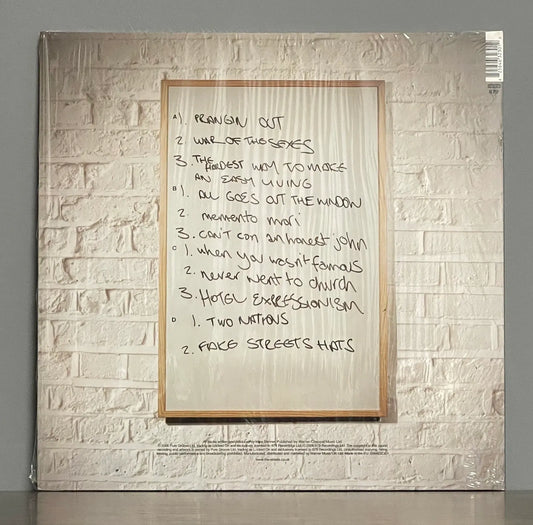 A 1. PRANGIN OUT
2. WAR OF THE SEXES
3. THE HARDEST WAY TO MAKE
AN EASY LIVING
B 1. ALL GOES OUT THE WINDOW
2. memento mori
3. can't con an honest john
C 1. when you wasn't famous
2. never went to church
3. HOTEL EXPRESSIONISM
D 1. TWO NATIONS
2. FAKE STREETS HATS